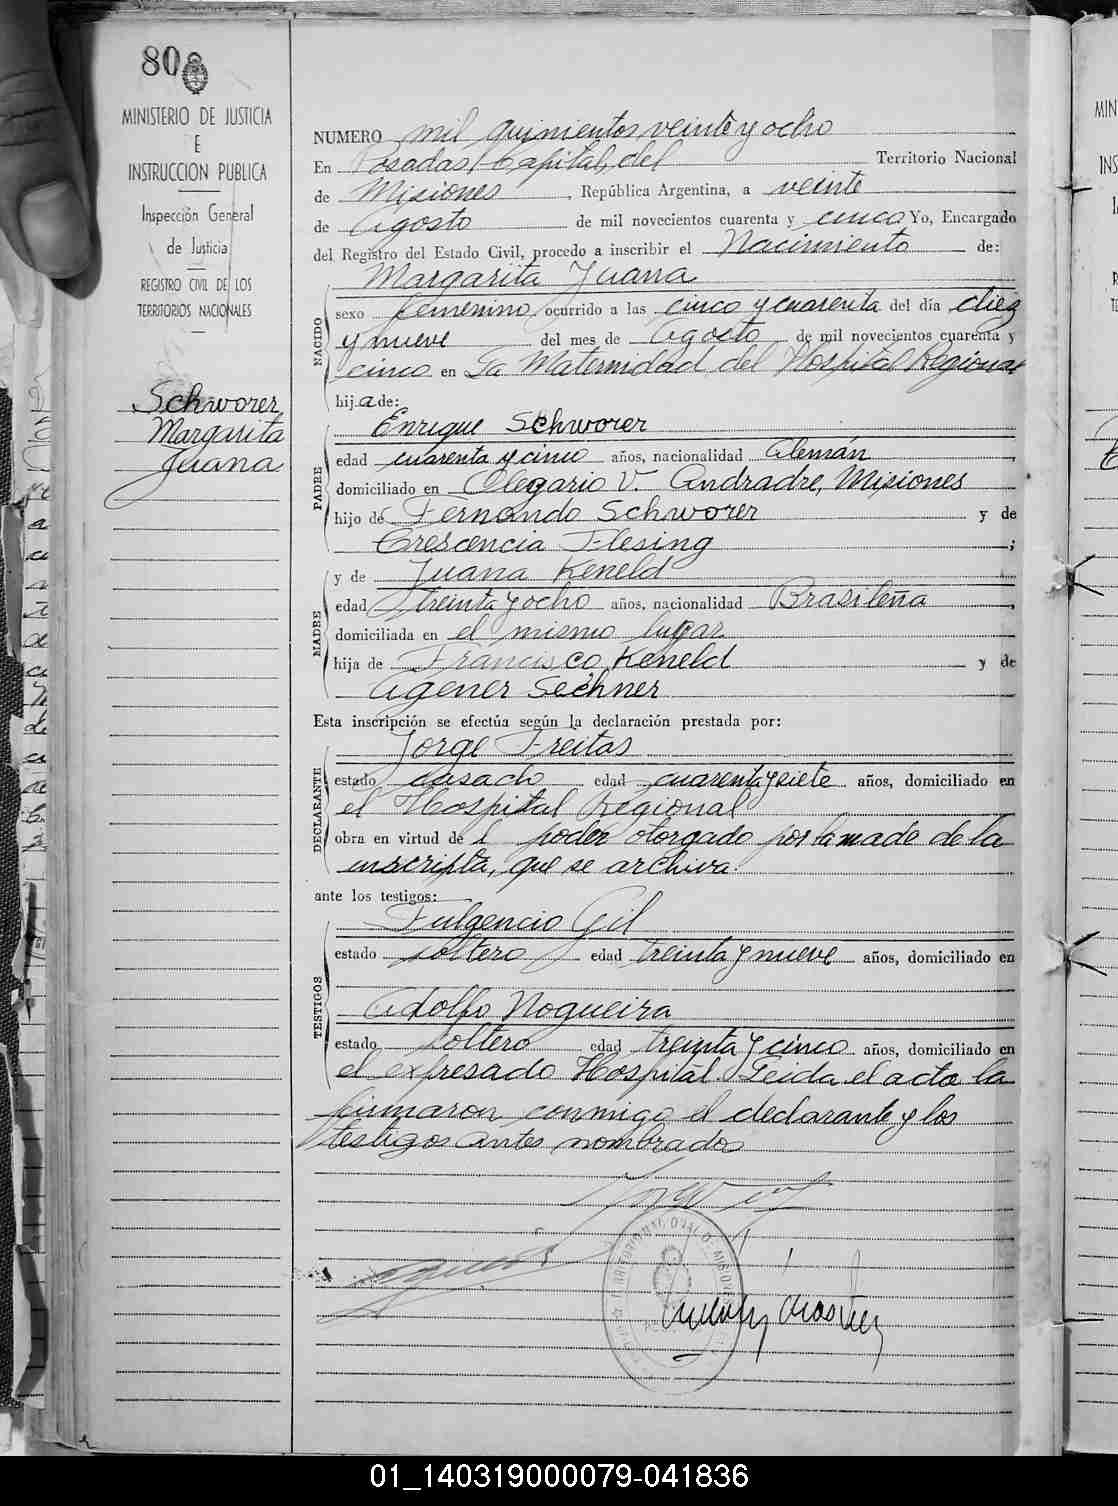 80
MINISTERIO DE JUSTICIA
E
INSTRUCCION PUBLICA
Inspección General
de Justicia
REGISTRO CIVIL DE LOS
TERRITORIOS NACIONALES
Schworer
Margarita
Juana
NUMERO mil quinientos veinte y ocho
En Posadas, Capital, del Territorio Nacional
de Misiones, República Argentina, a veinte
de Agosto de mil novecientos cuarenta y cinco Yo, Encargado
del Registro del Estado Civil, procedo a inscribir el Nacimiento de:
Margarita Juana
NACIDO
sexo femenino ocurrido a las cinco y cuarenta del día diez
y nueve del mes de Agosto de mil novecientos cuarenta y
cinco en La Maternidad del Hospital Regional
hija de:
Enrique Schworer
PADRE
edad cuarenta y cinco años, nacionalidad Alemán,
domiciliado en Olegario V. Andradre, Misiones
hijo de Fernando Schworer y de
Crescencia Flesing;
y de Juana Keneld
MADRE
edad treinta y ocho años, nacionalidad Brasileña,
domiciliada en el mismo lugar
hija de Francisco Keneld y de
Agener Sechner
Esta inscripción se efectúa según la declaración prestada por:
Jorge Freitas
DECLARANTE
estado casado edad cuarenta y siete años, domiciliado en
el Hospital Regional
obra en virtud del poder otorgado por la made de la
inscripta, que se archiva.
ante los testigos:
Fulgencio Gil
TESTIGOS
estado soltero edad treinta y nueve años, domiciliado en
Adolfo Nogueira
estado soltero edad treinta y cinco años, domiciliado en
el expresado Hospital. Leida el acta la
firmaron conmigo el declarante y los
testigos antes nombrados
01_140319000079-041836